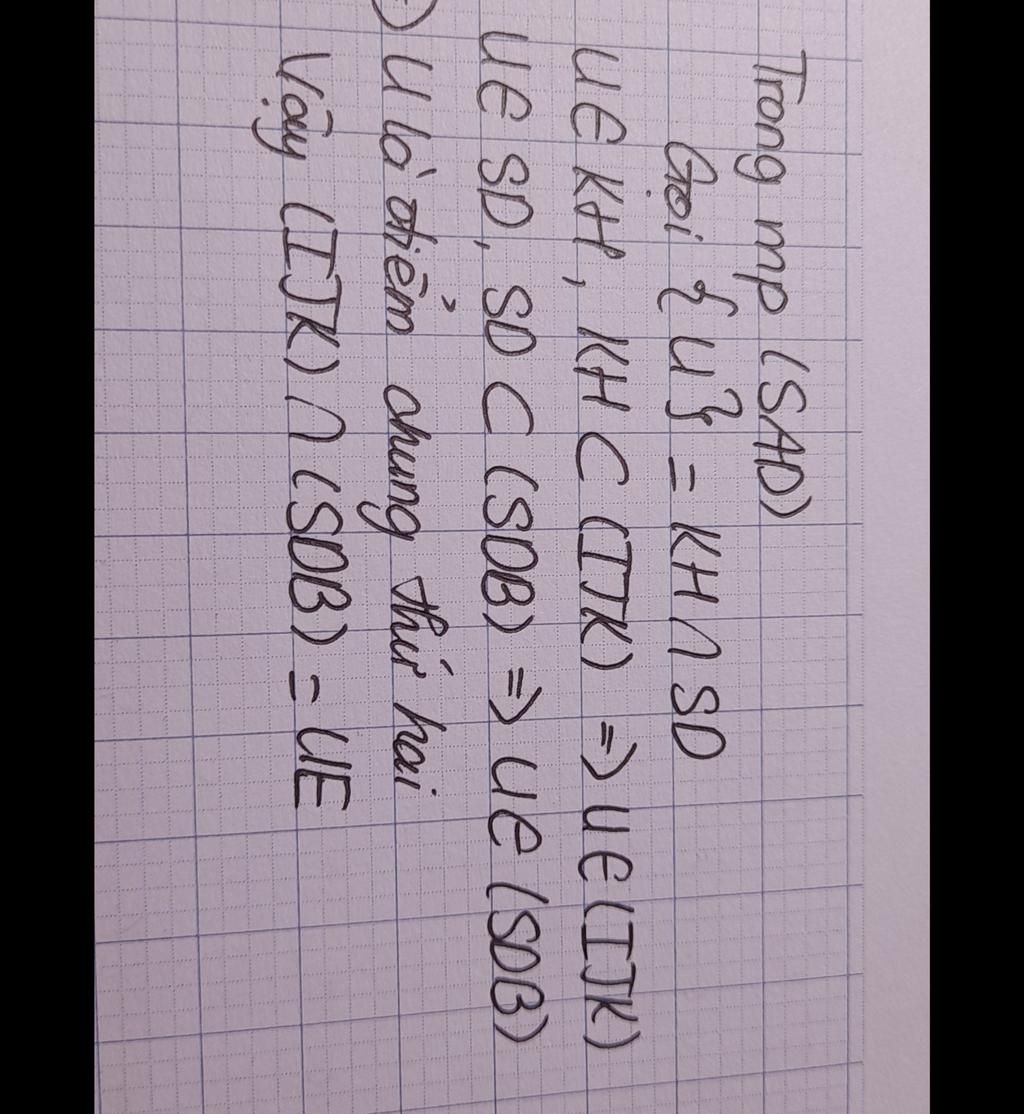 Trong mp (SAD)
Gọi {U} = KH ∩ SD
U ∈ KH, KH ⊂ (IJK) => U ∈ (IJK)
U ∈ SD, SD ⊂ (SDB) => U ∈ (SDB)
=> U là điểm chung thứ hai
Vậy (IJK) ∩ (SDB) = UE